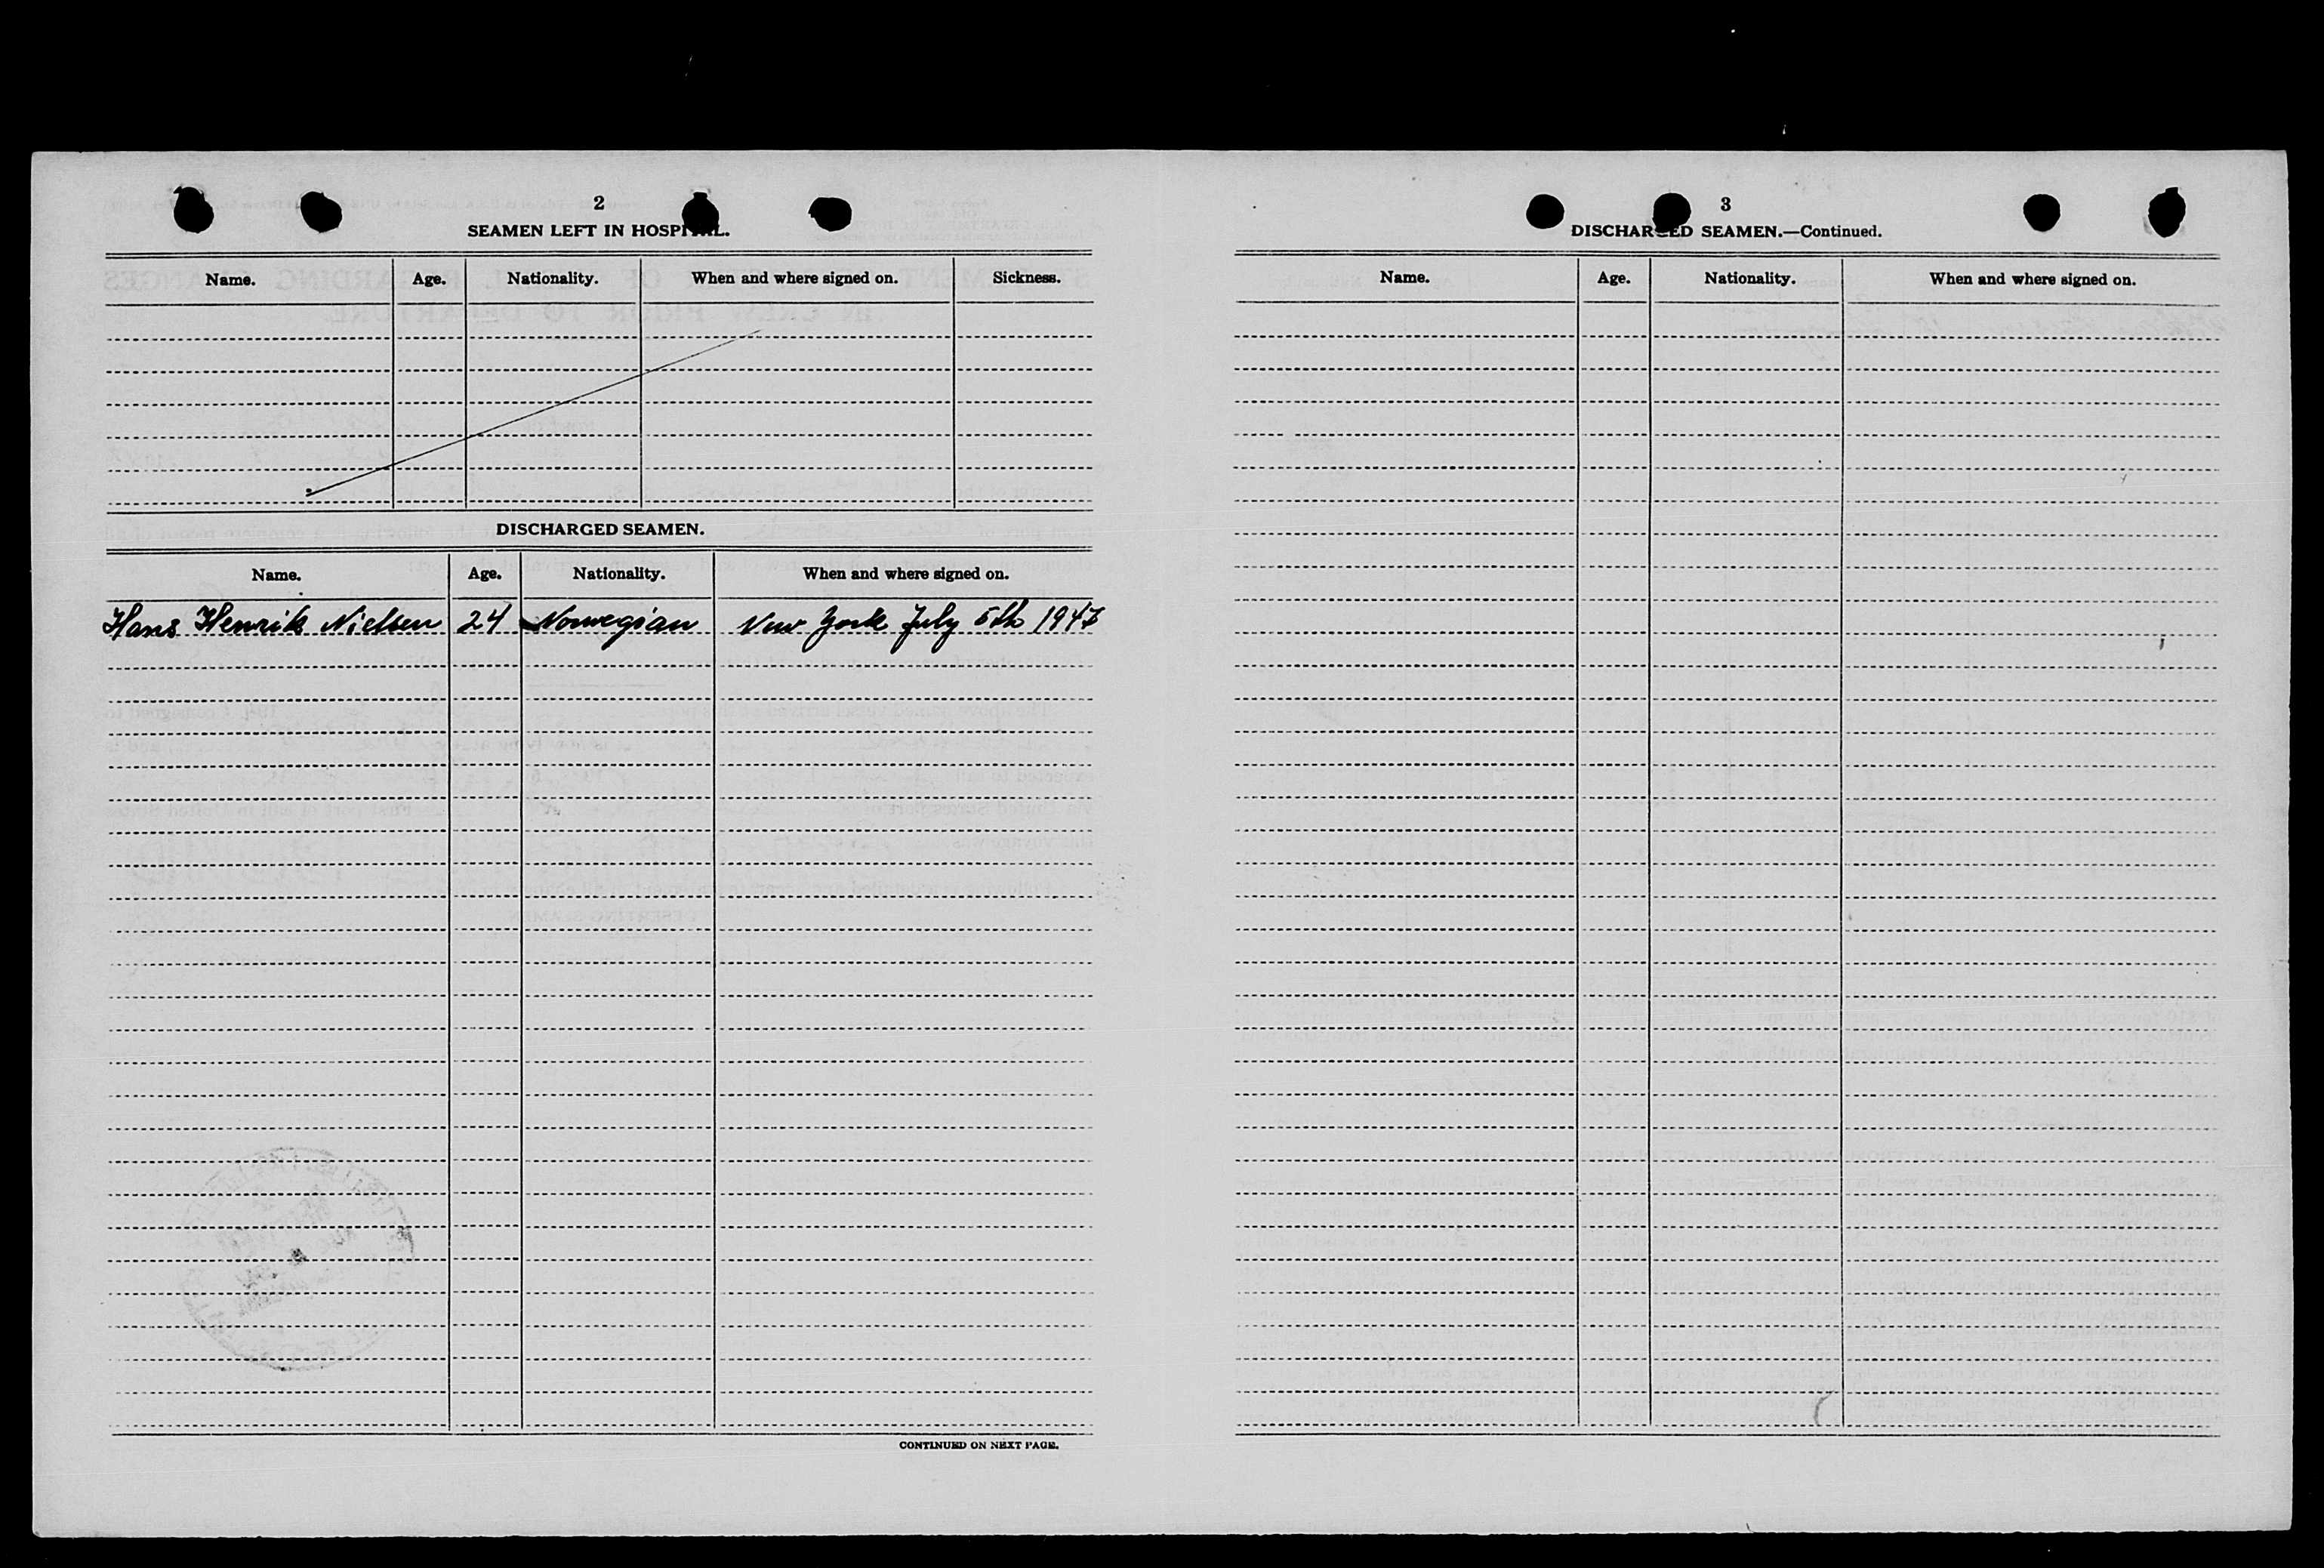 2
SEAMEN LEFT IN HOSPITAL.
Name. Age. Nationality. When and where signed on. Sickness.
DISCHARGED SEAMEN.
Name. Age. Nationality. When and where signed on.
Hans Henrik Nielsen 24 Norwegian New York July 5th 1947
CONTINUED ON NEXT PAGE.
3
DISCHARGED SEAMEN.—Continued.
Name. Age. Nationality. When and where signed on.